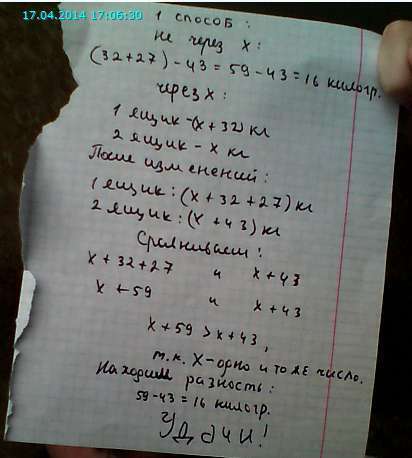 17.04.2014 17:06:30
1 способ:
не через х:
(32+27)-43=59-43=16 килогр.
через х:
1 ящик-(х+32) кг
2 ящик - х кг
После изменений:
1 ящик: (х+32+27) кг
2 ящик: (х+43) кг
Сравниваем:
х+32+27 и х+43
х+59 и х+43
х+59>х+43,
т.к. Х-одно и то же число.
Находим разность:
59-43=16 килогр.
Удачи!